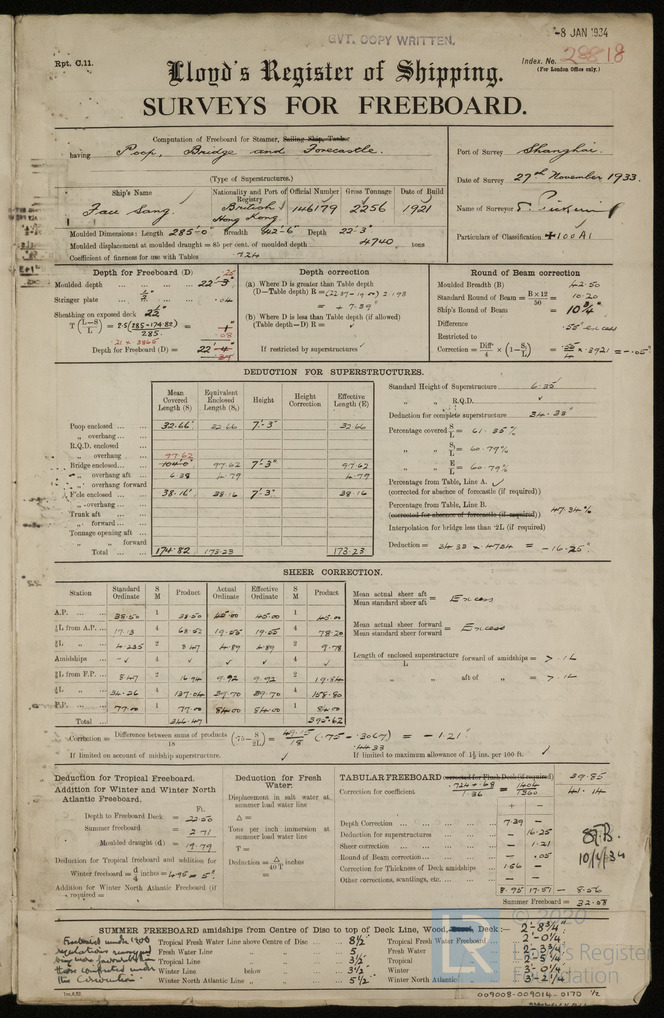 -8 JAN 1934
GVT. COPY WRITTEN.
Rpt. C.11.
Index. No. 28818
(For London Office only.)
Lloyd's Register of Shipping.
SURVEYS FOR FREEBOARD.
Computation of Freeboard for Steamer, Sailing Ship, Tanker
having Poop, Bridge and Forecastle.
(Type of Superstructures.)
Port of Survey Shanghai.
Date of Survey 27th November 1933.
Name of Surveyor
Particulars of Classification ✠100A1
Ship's Name Nationality and Port of Registry Official Number Gross Tonnage Date of Build
Sang. British Hong Kong. 146179 2256 1921
Moulded Dimensions: Length 285'-0" Breadth 42'-6" Depth 22'-3"
Moulded displacement at moulded draught = 85 per cent. of moulded depth 4740 tons
Coefficient of fineness for use with Tables .724
Depth for Freeboard (D)
Moulded depth ... 22'-3"
Stringer plate ... .04
Sheathing on exposed deck 2½"
T (L-S/L) = 2.5 (285-174.82)/285.
.21 x .3865 .08
Depth for Freeboard (D) = 22'-4"
Depth correction
(a) Where D is greater than Table depth
(D—Table depth) R = (22.37-19.00) 2.193
= + 7.39"
(b) Where D is less than Table depth (if allowed)
(Table depth—D) R = ✓
If restricted by superstructures ✓
Round of Beam correction
Moulded Breadth (B) 42.50
Standard Round of Beam = B×12/50 = 10.20
Ship's Round of Beam = 10¾"
Difference .55" excess
Restricted to
Correction = Diffce/4 × (1-S₁/L) = .55/4 x .3921 = -.05"
DEDUCTION FOR SUPERSTRUCTURES.
Mean Covered Length (S) Equivalent Enclosed Length (S₁) Height Height Correction Effective Length (E)
Poop enclosed ... 32.66' 32.66 7'-3" 32.66
„ overhang ...
R.Q.D. enclosed
„ overhang 97.62
Bridge enclosed... 104.0' 97.62 7'-3" 97.62
„ overhang aft ... 6.38 4.79 4.79
„ overhang forward
F'cle enclosed ... 38.16' 38.16 7'-3" 38.16
„ overhang ...
Trunk aft ...
„ forward ...
Tonnage opening aft ...
„ „ forward
Total ... 174.82 173.23 173.23
Standard Height of Superstructure 6.35'
„ „ R.Q.D. ✓
Deduction for complete superstructure 34.33"
Percentage covered S/L = 61.35%
„ „ S₁/L = 60.79%
„ „ E/L = 60.79%
Percentage from Table, Line A. ✓
(corrected for absence of forecastle (if required))
Percentage from Table, Line B. 47.34%
(corrected for absence of forecastle (if required))
Interpolation for bridge less than ·2L (if required)
Deduction = 34.33 x .4734 = -16.25"
SHEER CORRECTION.
Station Standard Ordinate S M Product Actual Ordinate Effective Ordinate S M Product
A.P. ... 38.50 1 38.50 45.00 45.00 1 45.00
⅙L from A.P. ... 17.13 4 68.52 19.55 19.55 4 78.20
⅓L „ ... 4.235 2 8.47 4.89 4.89 2 9.78
Amidships ... - ✓ 4 ✓ ✓ ✓ 4 ✓
⅓L from F.P. ... 8.47 2 16.94 9.92 9.92 2 19.84
⅙L „ ... 34.26 4 137.04 39.70 39.70 4 158.80
F.P. ... 77.00 1 77.00 84.00 84.00 1 84.00
Total ... 346.47 395.62
Mean actual sheer aft / Mean standard sheer aft = Excess
Mean actual sheer forward / Mean standard sheer forward = Excess
Length of enclosed superstructure / L forward of amidships = > .1L
„ „ aft of „ = > .1L
Correction = Difference between sums of products/18 (·75-S/2L) = 49.15/18 (.75 - .3067) = -1.21"
.4433
If limited on account of midship superstructure. ✓ If limited to maximum allowance of 1½ ins. per 100 ft. ✓
Deduction for Tropical Freeboard.
Addition for Winter and Winter North Atlantic Freeboard.
Ft.
Depth to Freeboard Deck = 22.50
Summer freeboard = 2.71
Moulded draught (d) = 19.79
Deduction for Tropical freeboard and addition for
Winter freeboard = d/4 inches = 4.95 = 5"
Addition for Winter North Atlantic Freeboard (if required) =
Deduction for Fresh Water.
Displacement in salt water at summer load water line
Δ =
Tons per inch immersion at summer load water line
T =
Deduction = Δ/40T inches
=
TABULAR FREEBOARD corrected for Flush Deck (if required) 39.85
Correction for coefficient .724+.68/1.36 = 1404/1360 41.14
+ -
Depth Correction ... 7.39 -
Deduction for superstructures ... - 16.25
Sheer correction ... - 1.21
Round of Beam correction... - .05
Correction for Thickness of Deck amidships 1.56 -
Other corrections, scantlings, etc. ... - -
8.95 17.51 - 8.56
Summer Freeboard = 32.58
10/1/34
SUMMER FREEBOARD amidships from Centre of Disc to top of Deck Line, Wood, Steel, Deck:— 2'-8¾"
Tropical Fresh Water Line above Centre of Disc ... 8½" Tropical Fresh Water Freeboard 2'-0¼"
Fresh Water Line „ „ ... 5 Fresh Water „ 2'-3¾"
Tropical Line „ „ ... 3½" Tropical „ 2'-5¼"
Winter Line below „ ... 3½" Winter „ 3'-0¼"
Winter North Atlantic Line „ „ ... 5½" Winter North Atlantic „ 3'-2¼"
Freeboard under 1906
regulations
© 2020
LR
Lloyd's Register
Foundation
009008-009014-0170 ½